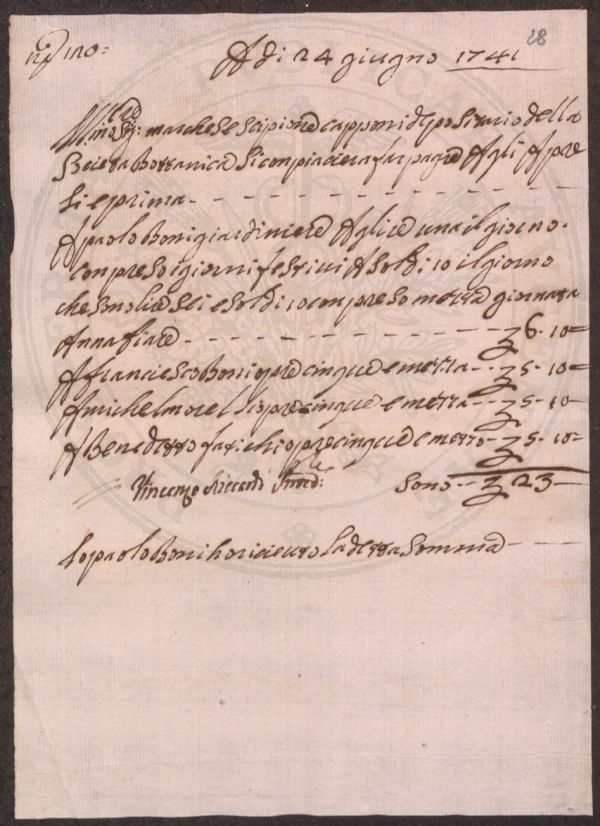 nº 120:
28
A di 24 giugno 1741
Illmo Sig: marchese scipione capponi dipositario della
Societa Bottanica Si conpiacera far pagre Agli Apre
Si e prima
A paolo Boni giardiniere Aglire una il giorno
conpreso i giorni festiui A soldi 10 il giorno
che sono lire sei e soldi 10 conpreso mezza giornata
Annafiare 6 - 10 =
A franciesco Boni opre cinque e mezza 5 - 10 =
A michel opre cinque e mezza 5 - 10
A Benedetto fachi opre cinque e mezzo 5 - 10 =
Vincenzo Riccardi Sono 23
Io paolo Boni ho riceuto La detta Somma